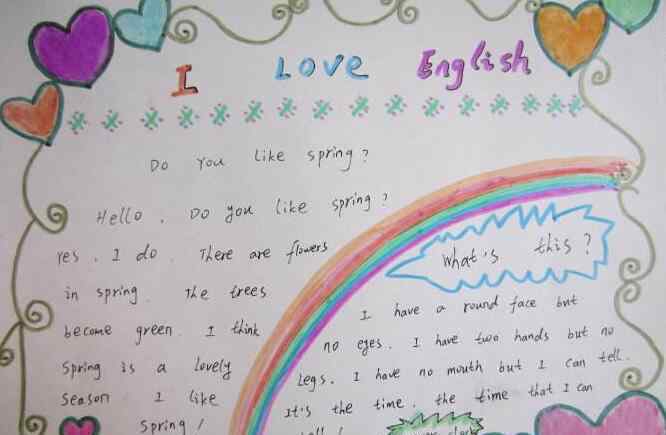 I Love English
Do you like spring?
Hello. Do you like spring?
yes. I do. There are flowers
in spring. The trees
become green. I think
Spring is a lovely
Season. I like
Spring!
What's this?
I have a round face but
no eyes. I have two hands but no
Legs. I have no mouth but I can tell.
It's the time. the time that I can